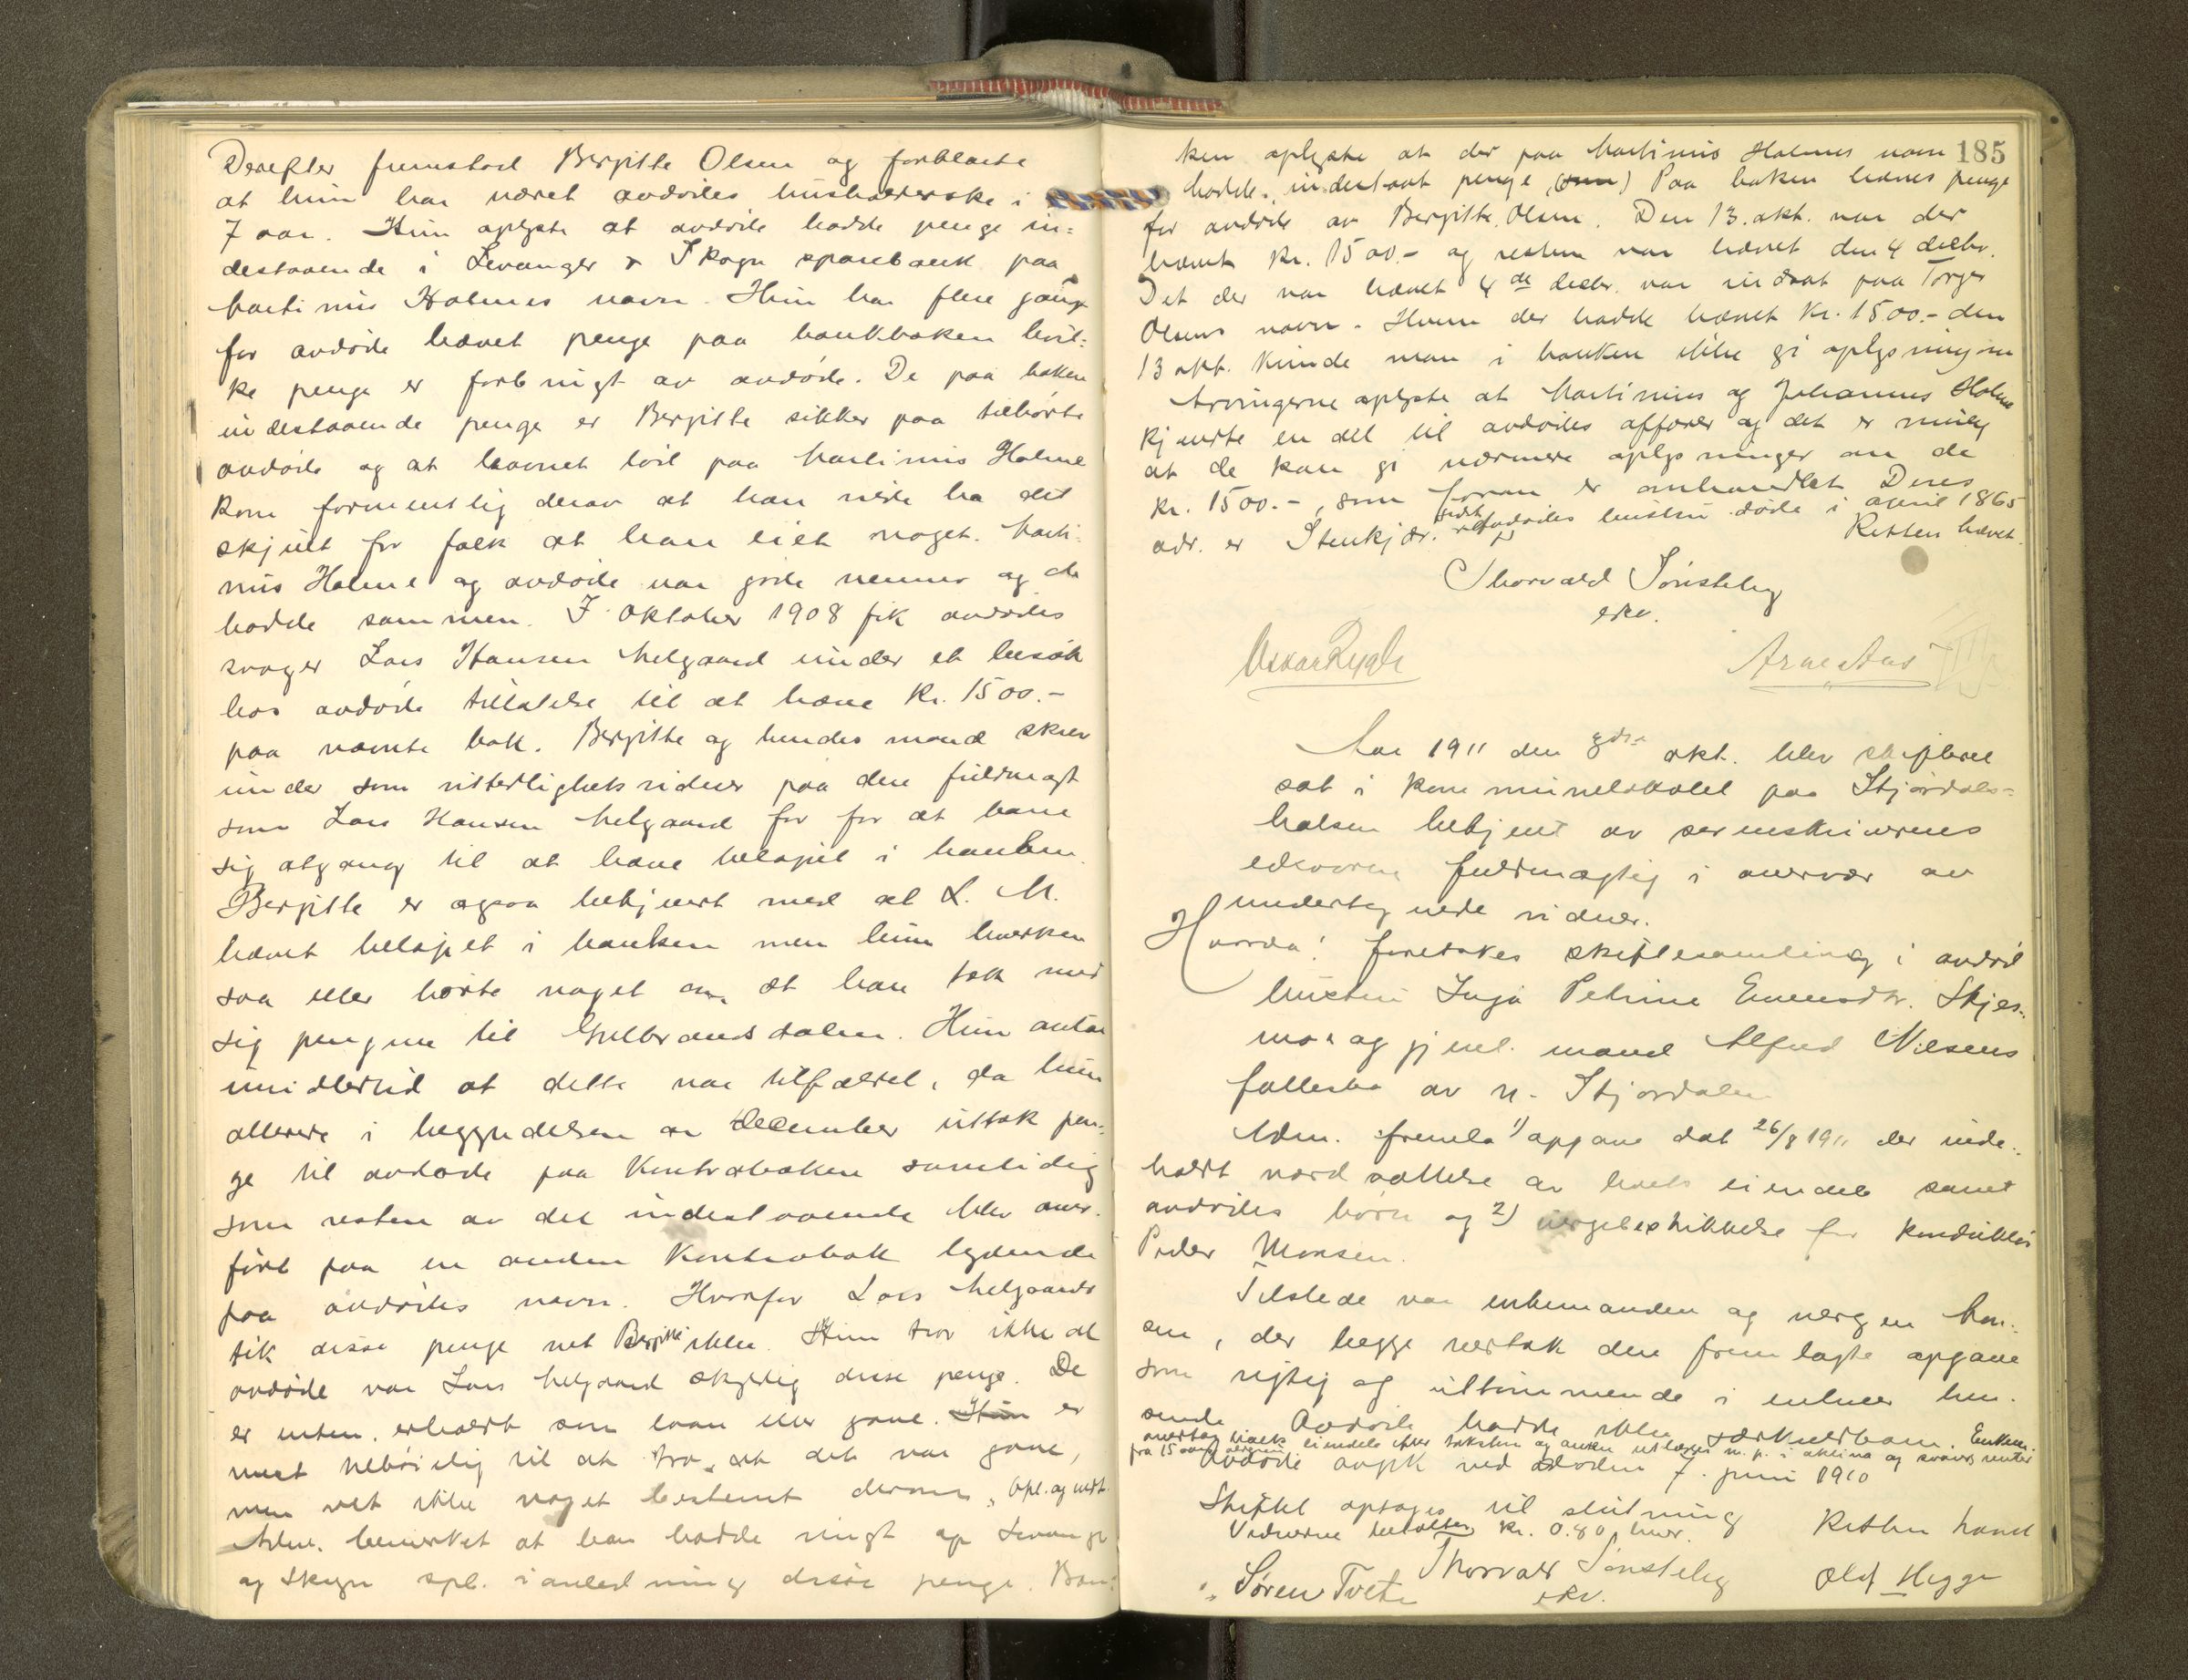 Derefter fremstod Bergitte Olsen og forklarte
at hun har været avdødes husholderske i
7 aar. Hun oplyste at avdøde hadde penge in=
destaaende i Levanger & Skogn sparebank paa
Martinus Holmes navn. Hun har flere gange
for avdøde hævet penge paa bankboken hvil=
ke penge er forbrugt av avdøde. De paa boken
indestaaende penge er Bergitte sikker paa tilhørte
avdøde og at navnet lød paa Martinus Holme
kom formentlig derav at han vilde ha det
skjult for folk at han eiet noget. Marti=
nus Holme og avdøde var gode venner og de
bodde sammen. I oktober 1908 fik avdødes
svoger Lars Hansen Melgaard under et besøk
hos avdøde tillatelse til at hæve kr. 1500.-
paa nævnte bok. Bergitte og hendes mand skrev
under som vitterlighetsvidner paa den fuldmagt
som Lars Hansen Melgaard fik for at bane
sig atgang til at hæve beløpet i banken.
Bergitte er ogsaa bekjent med at L. M.
hævet beløpet i banken men hun hverken
saa eller hørte noget om at han tok med
sig pengene til Gulbrandsdalen. Hun antar
imidlertid at dette var tilfældet, da hun
allerede i begyndelsen av december uttok pen=
ge til avdøde paa kontraboken samtidig
som resten av det indestaaende blev over=
ført paa en anden kontrabok lydende
paa avdødes navn. Hvorfor Lars Melgaard
fik disse penge vet Bergitte ikke. Hun tror ikke at
avdøde var Lars Melgaard skyldig disse penge. De
er enten erholdt som laan eller gave. Hun er
mest tilbøielig til at tro at det var gave,
men vet ikke noget bestemt derom. Opl. og vedt.
Adm. bemerket at han hadde ringt op Levanger
og Skogn spb. i anledning disse penge. Ban=
185
ken oplyste at der paa Martinus Holmes navn
hadde indestaat penge (som) Paa boken hævet penge
for avdøde av Bergitte Olsen. Den 13. okt. var der
hævet kr. 1500.- og resten var hævet den 4 decbr.
Det der var hævet 4de decbr. var indsat paa Torger
Olsens navn. Hvem der hadde hævet kr. 1500.- den
13 okt. kunde man i banken ikke gi oplysning om
Arvingerne oplyste at Martinus og Johannes Holme
kjendte en del til avdødes affærer og det er mulig
at de kan gi nærmere oplysninger om de
kr. 1500.-, som foran er omhandlet. Deres
adr. er Stenkjær. avdødes hustru døde i april 1865
Retten hævet.
Thorvald Sønsteby
edsv.
Oskar Rygh
Arne Aas
Aar 1911 den 3die okt. blev skifteret
sat i kommunelokalet paa Stjørdals=
halsen betjent av sorenskriverens
edsvorne fuldmægtig i overvær av
undertegnede vidner.
Hvorda: foretokes skiftesamling i avdød
hustru Inga Petrine Evensdtr. Skjes=
mo's og gjenl. mand Alfred Nilsens
fællesbo av n. Stjørdalen
Adm. fremla 1) opgave dat 26/8 1911 der inde=
holdt værdsættelse av boets eiendele samt
avdødes børn og 2) vergebeskikkelse for konduktør
Peder Monsen.
Tilstede var enkemanden og vergen Mon=
sen, der begge vedtok den fremlagte opgave
som rigtig og uttømmende i enhver hen=
seende. Avdøde hadde ikke særkuldbarn. Enkem.
overtag boets eiendele efter taksten og arven utlægges
Avdøde avgik ved døden 7. juni 1910
Skiftet optages til slutning
Vidnerne betaltes kr. 0.80 hver.
Retten hævet
Thorvald Sønsteby
edsv.
Søren Tvete
Olof Hegge